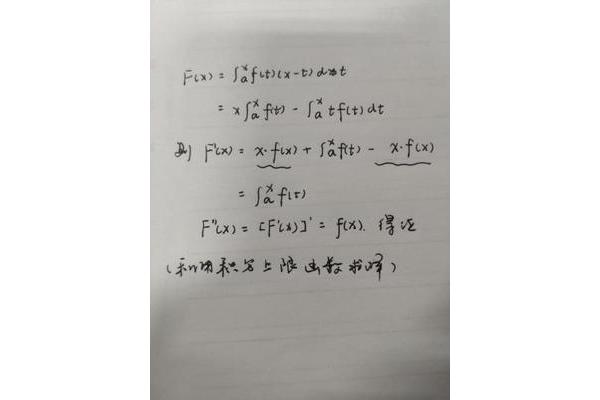 F(x) = ∫ₐˣ f(t)(x-t) dt
= x∫ₐˣ f(t) - ∫ₐˣ t f(t) dt
则 F'(x) = x·f(x) + ∫ₐˣ f(t) - x·f(x)
= ∫ₐˣ f(t)
F''(x) = [F'(x)]' = f(x). 得证
(利用积分上限函数求导)